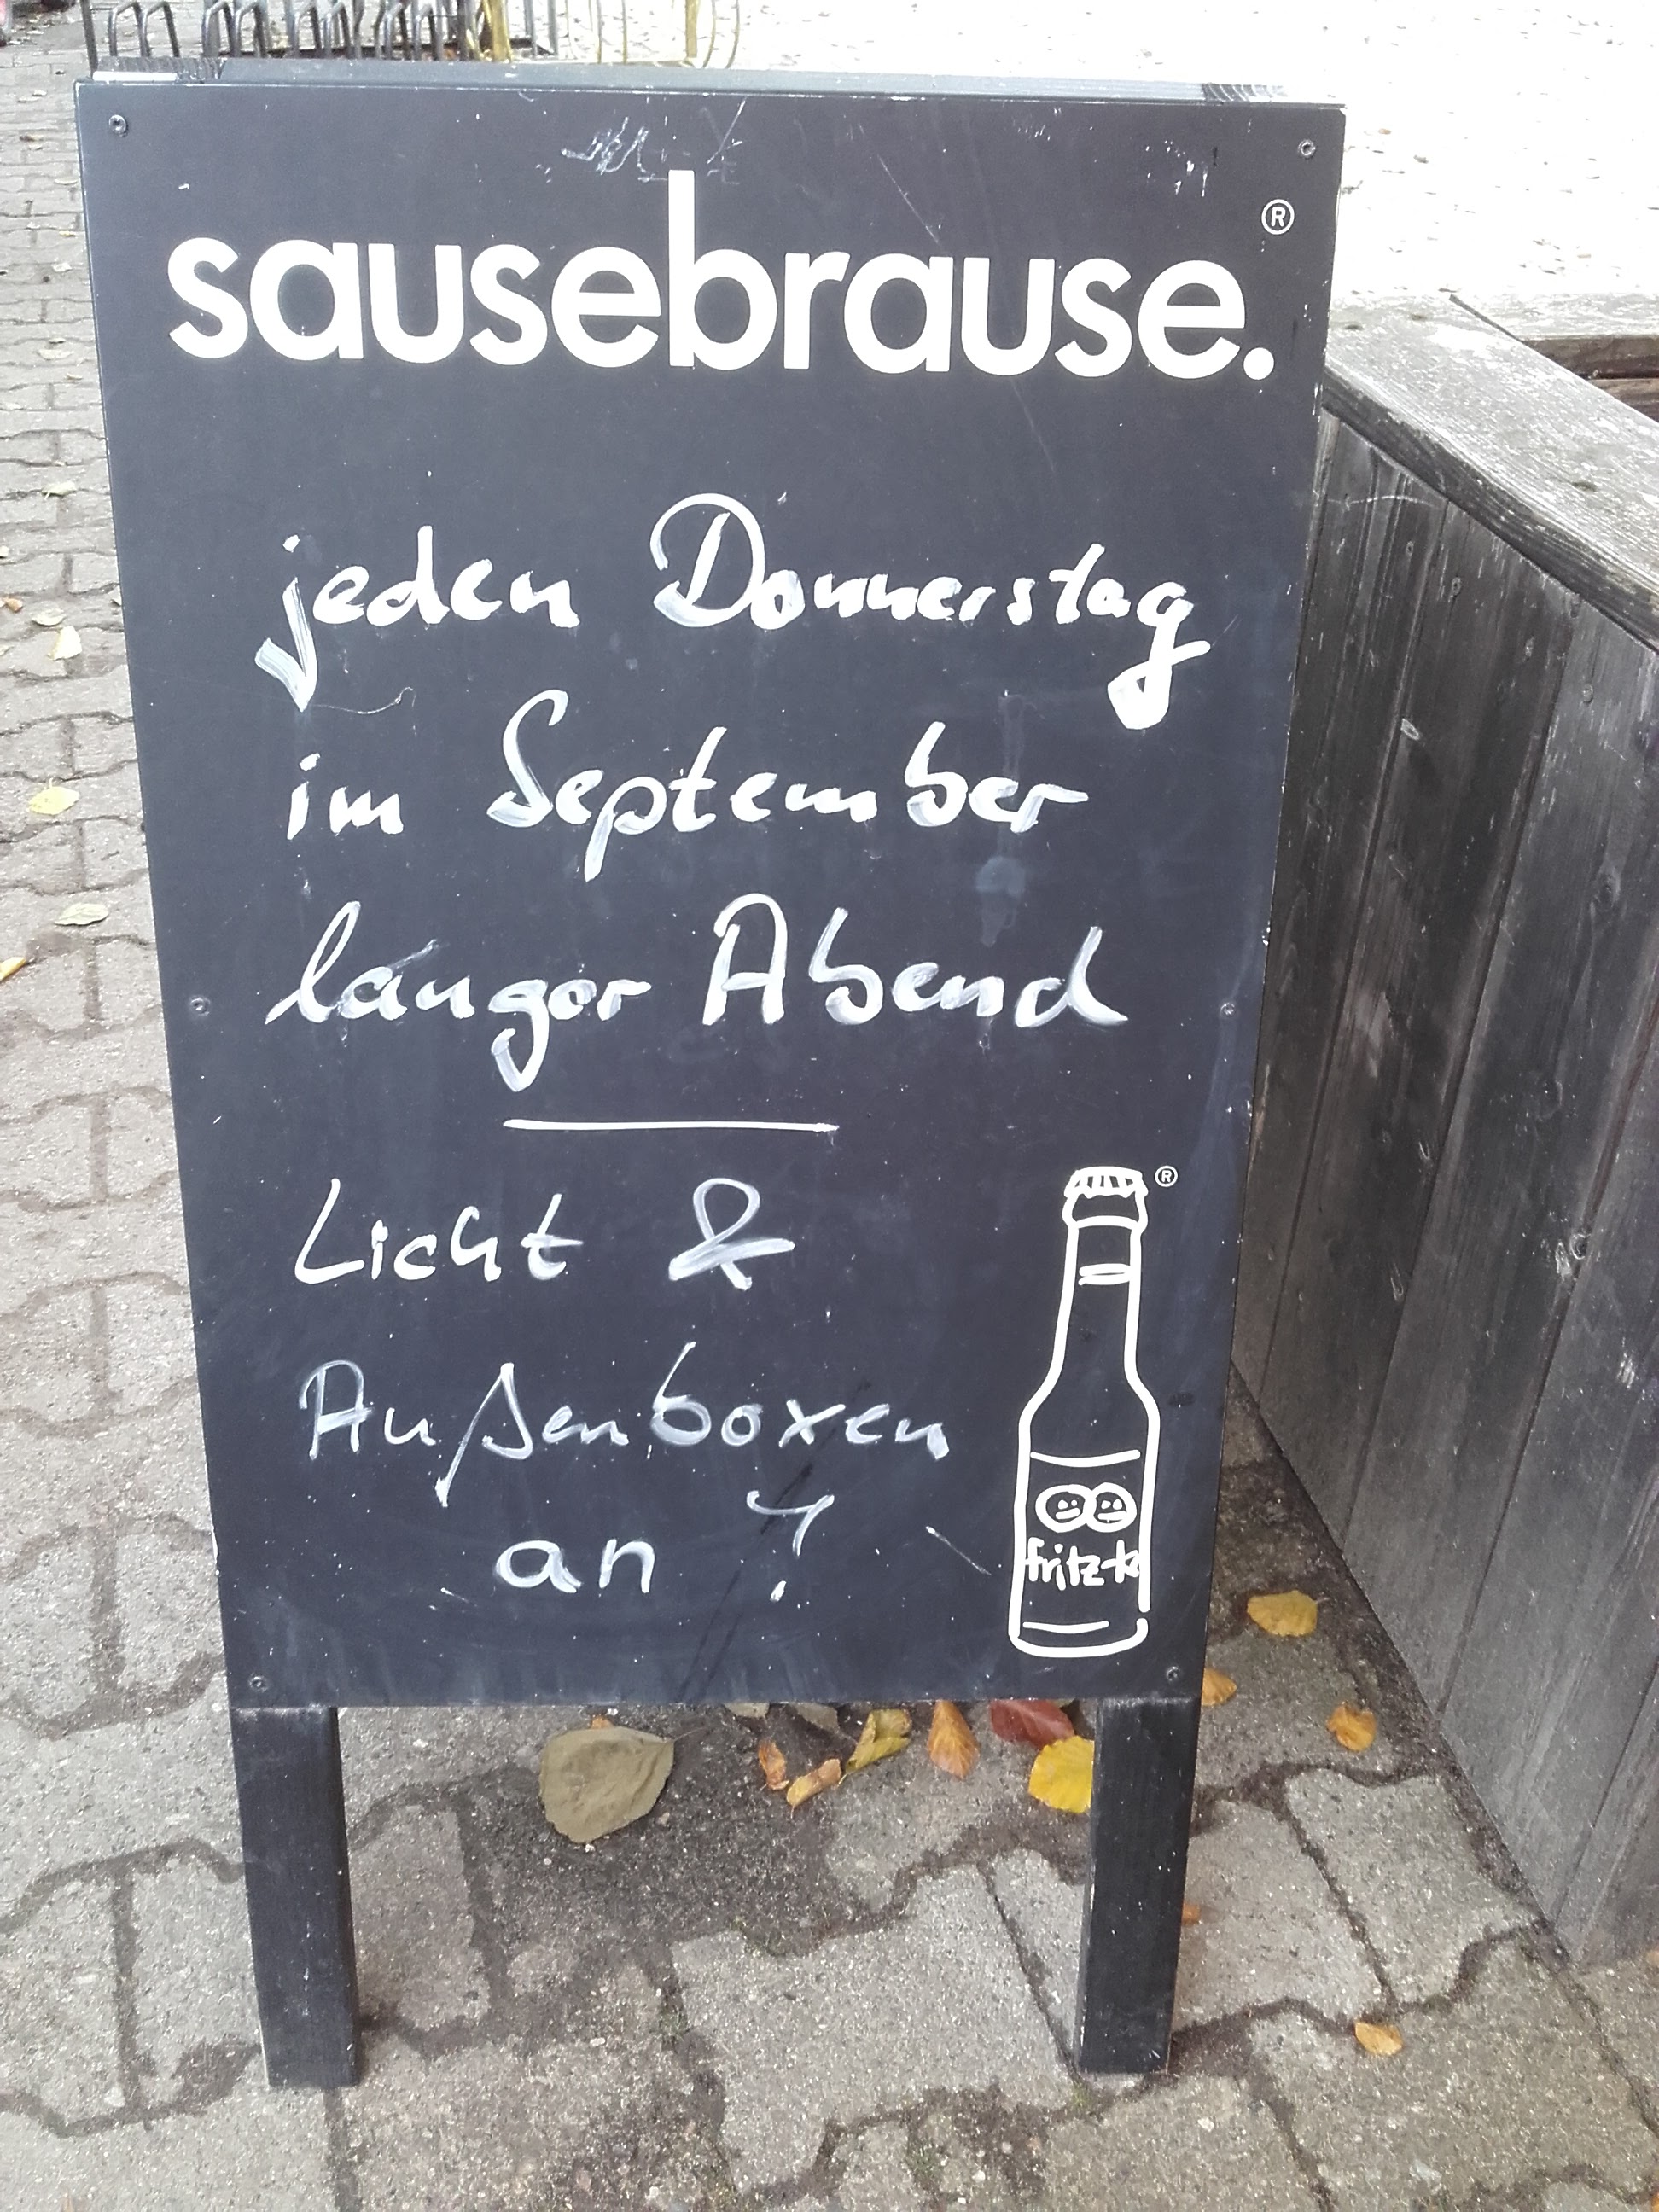 sausebrause.®
jeden Donnerstag
im September
langer Abend
Licht &
Außenboxen
an !
®
fritz-k